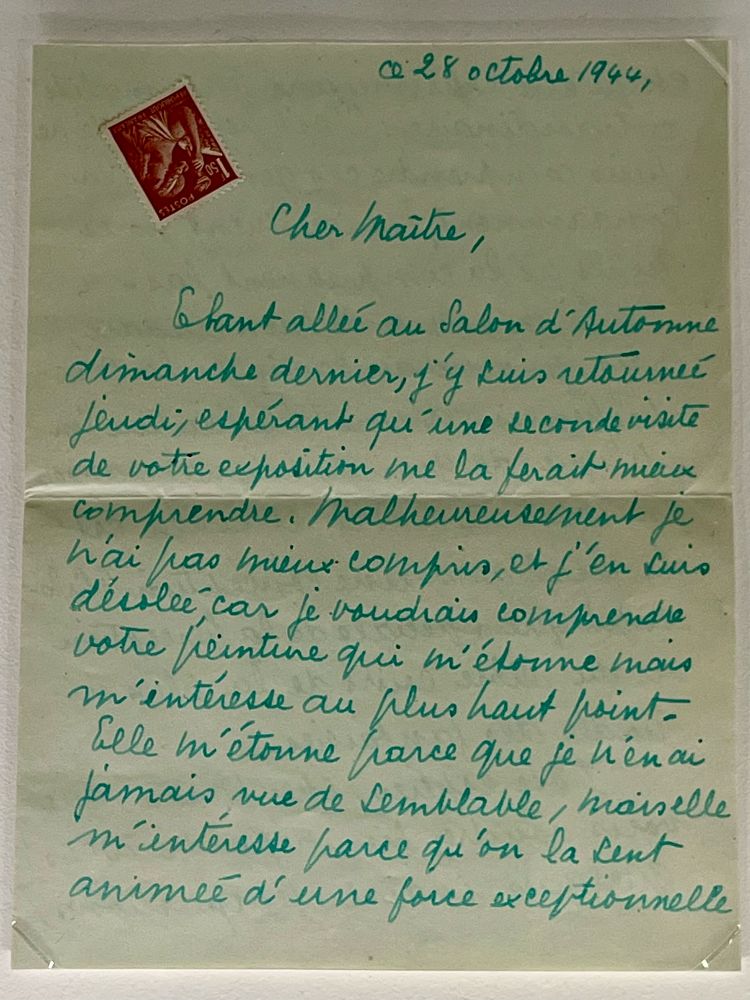 ce 28 octobre 1944,
1F50
POSTES
Cher Maître,
Etant alleé au Salon d'Automne
dimanche dernier, j'y suis retourneé
jeudi, espérant qu'une seconde visite
de votre exposition me la ferait mieux
comprendre. Malheureusement je
n'ai pas mieux compris, et j'en suis
désoleé, car je voudrais comprendre
votre peinture qui m'étonne mais
m'intéresse au plus haut point.
Elle m'étonne parce que je n'en ai
jamais vue de semblable, mais elle
m'intéresse parce qu'on la sent
animeé d'une force exceptionnelle